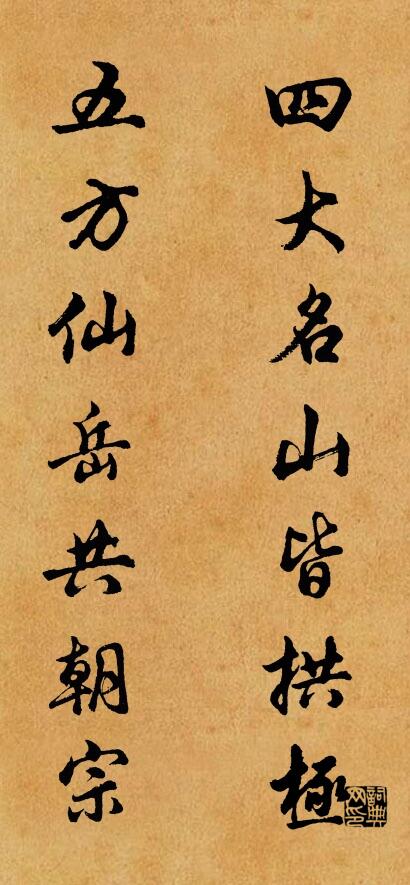 四大名山皆拱極
五方仙岳共朝宗
詞典
网印